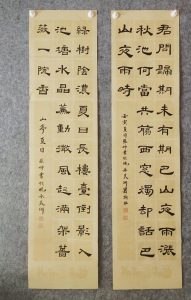 君問歸期未有期巴山夜雨漲
秋池何當共剪西窗燭却話巴
山夜雨時
綠樹陰濃夏日長樓臺倒影入
池塘水晶簾動微風起滿架薔
薇一院香
山亭夏日